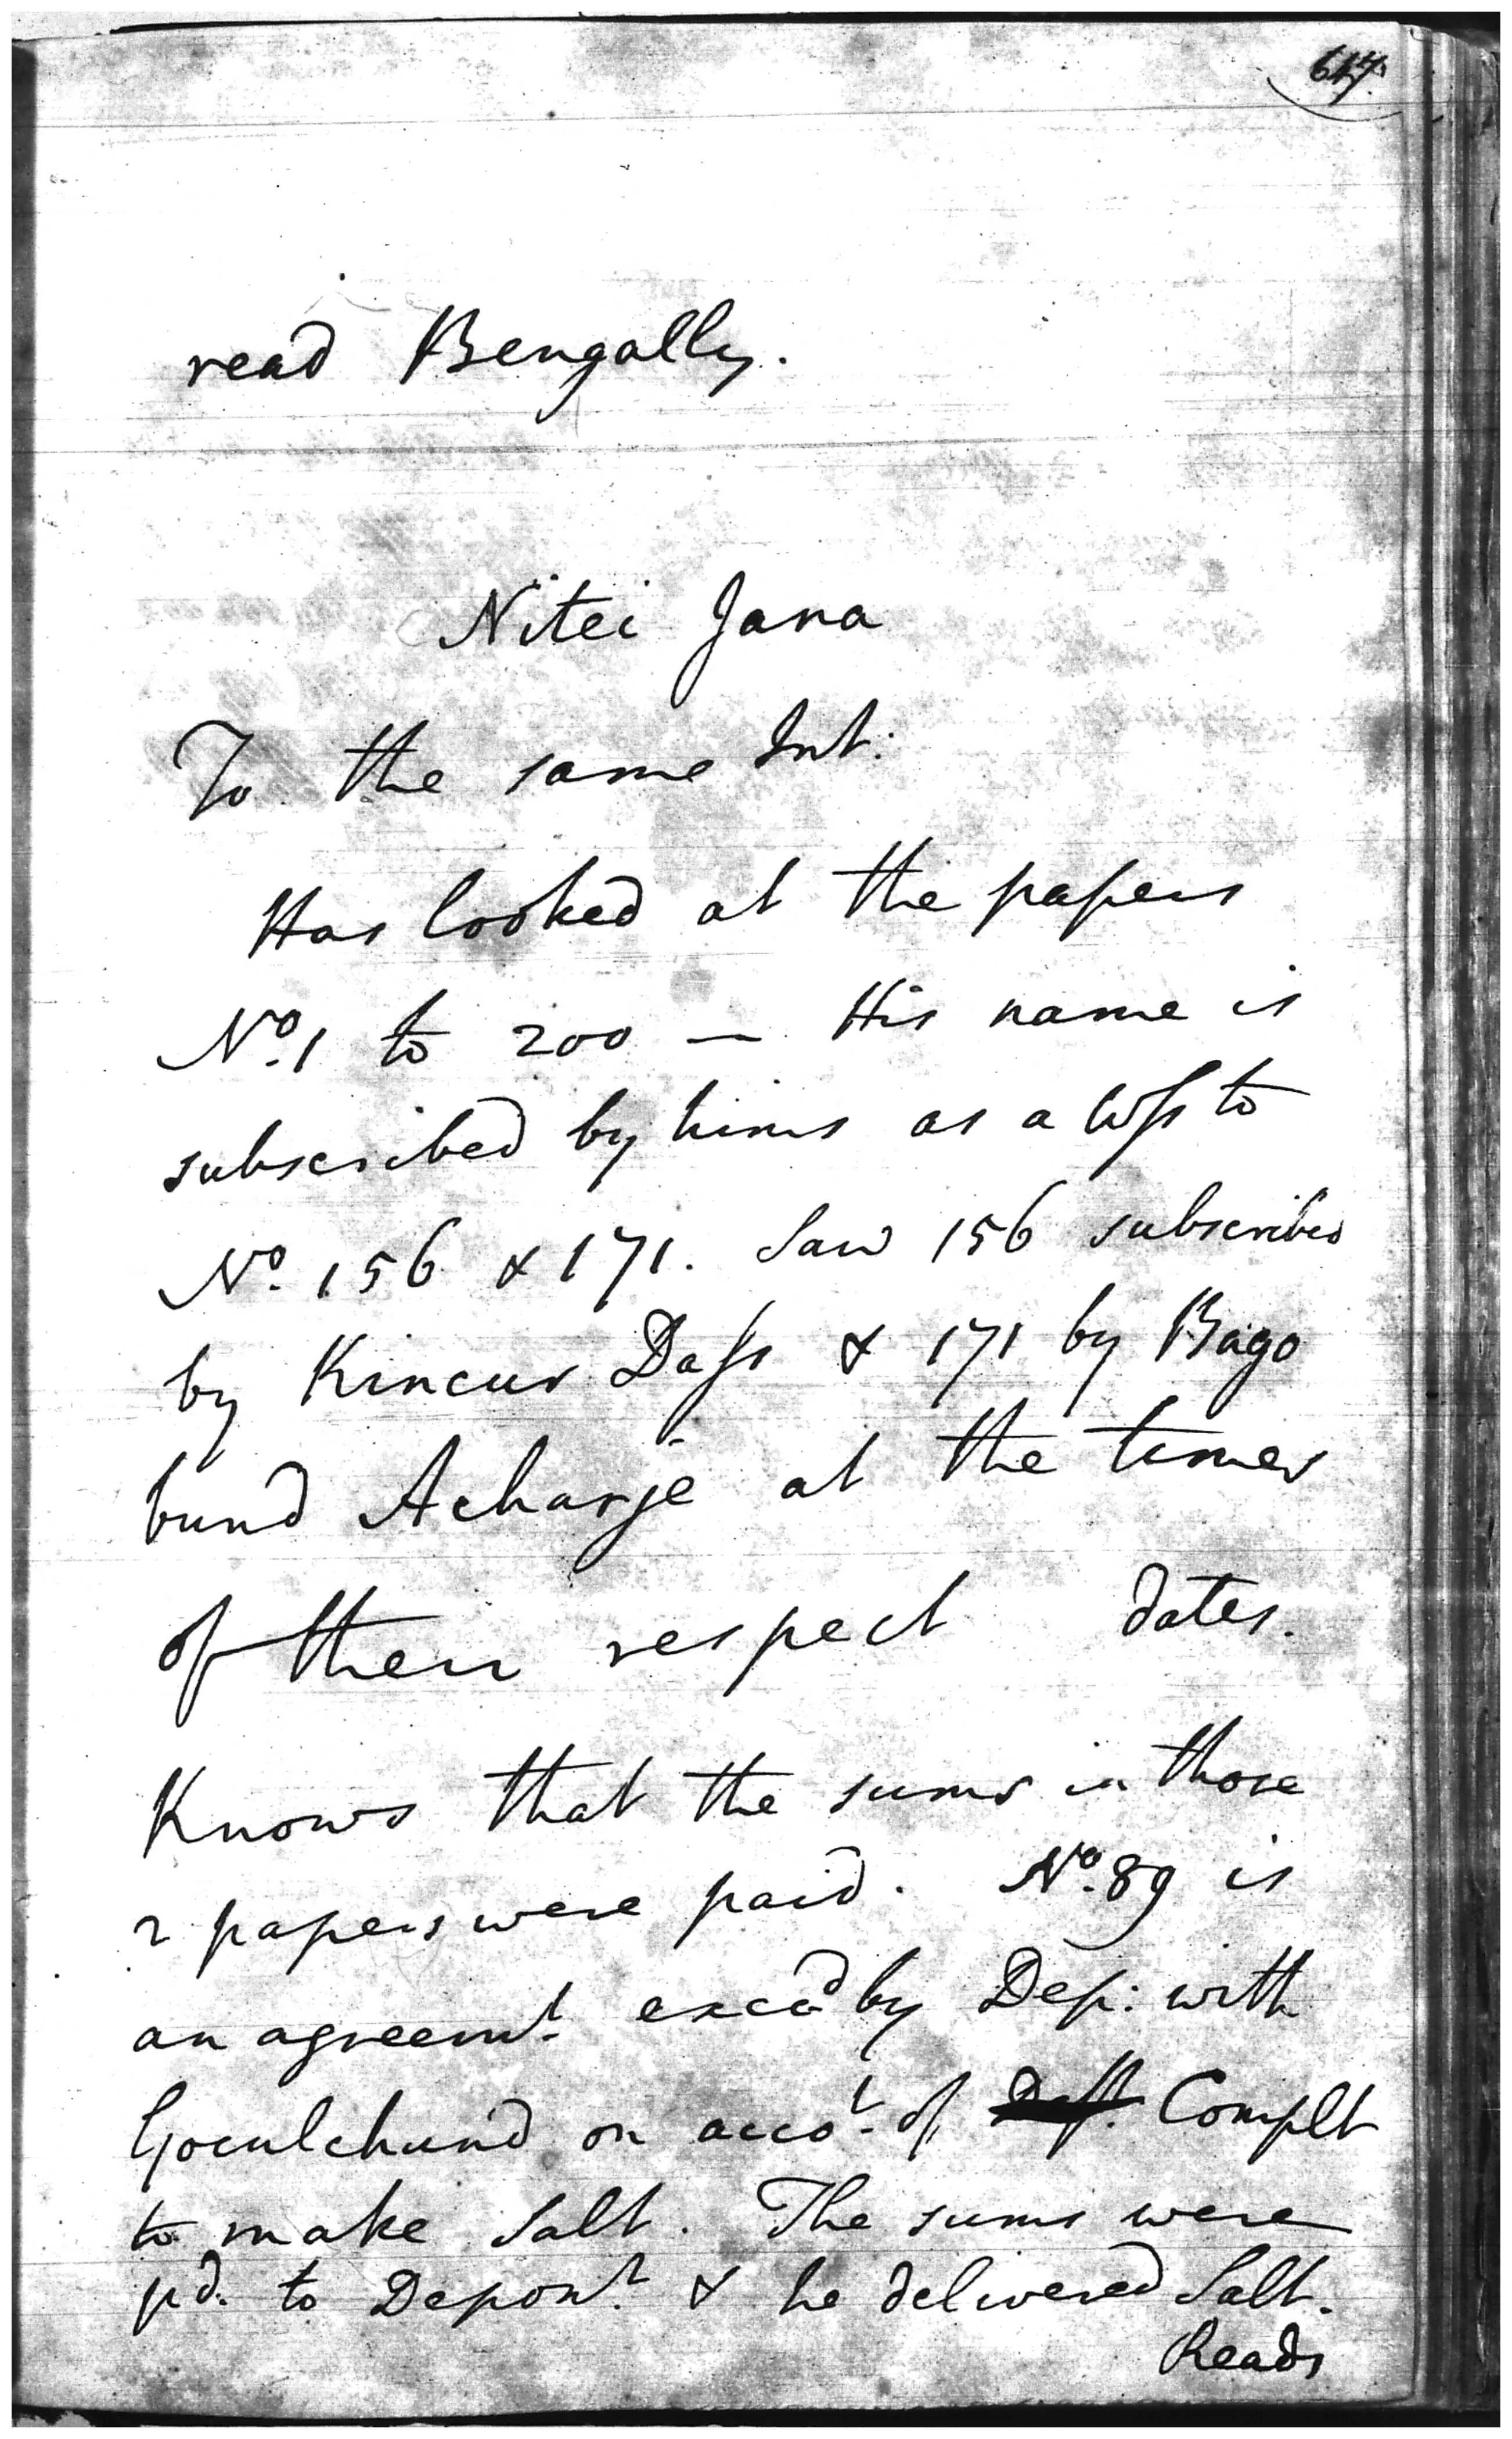 read Bengally.
Nitei Jana
To the same Int:
Has looked at the papers
No. 1 to 200 — His name is
subscribed by him as a Wss to
No. 156 & 171. Saw 156 subscribed
by Kincur Dass & 171 by Bago
bund Acharje at the times
of their respect dates.
Knows that the sums in those
2 papers were paid. No. 89 is
an agreemt. execd by Dep: with
Goculchund on accot. of Complt
to make Salt. The sums were
pd. to Depont. & he delivered Salt.
Reads